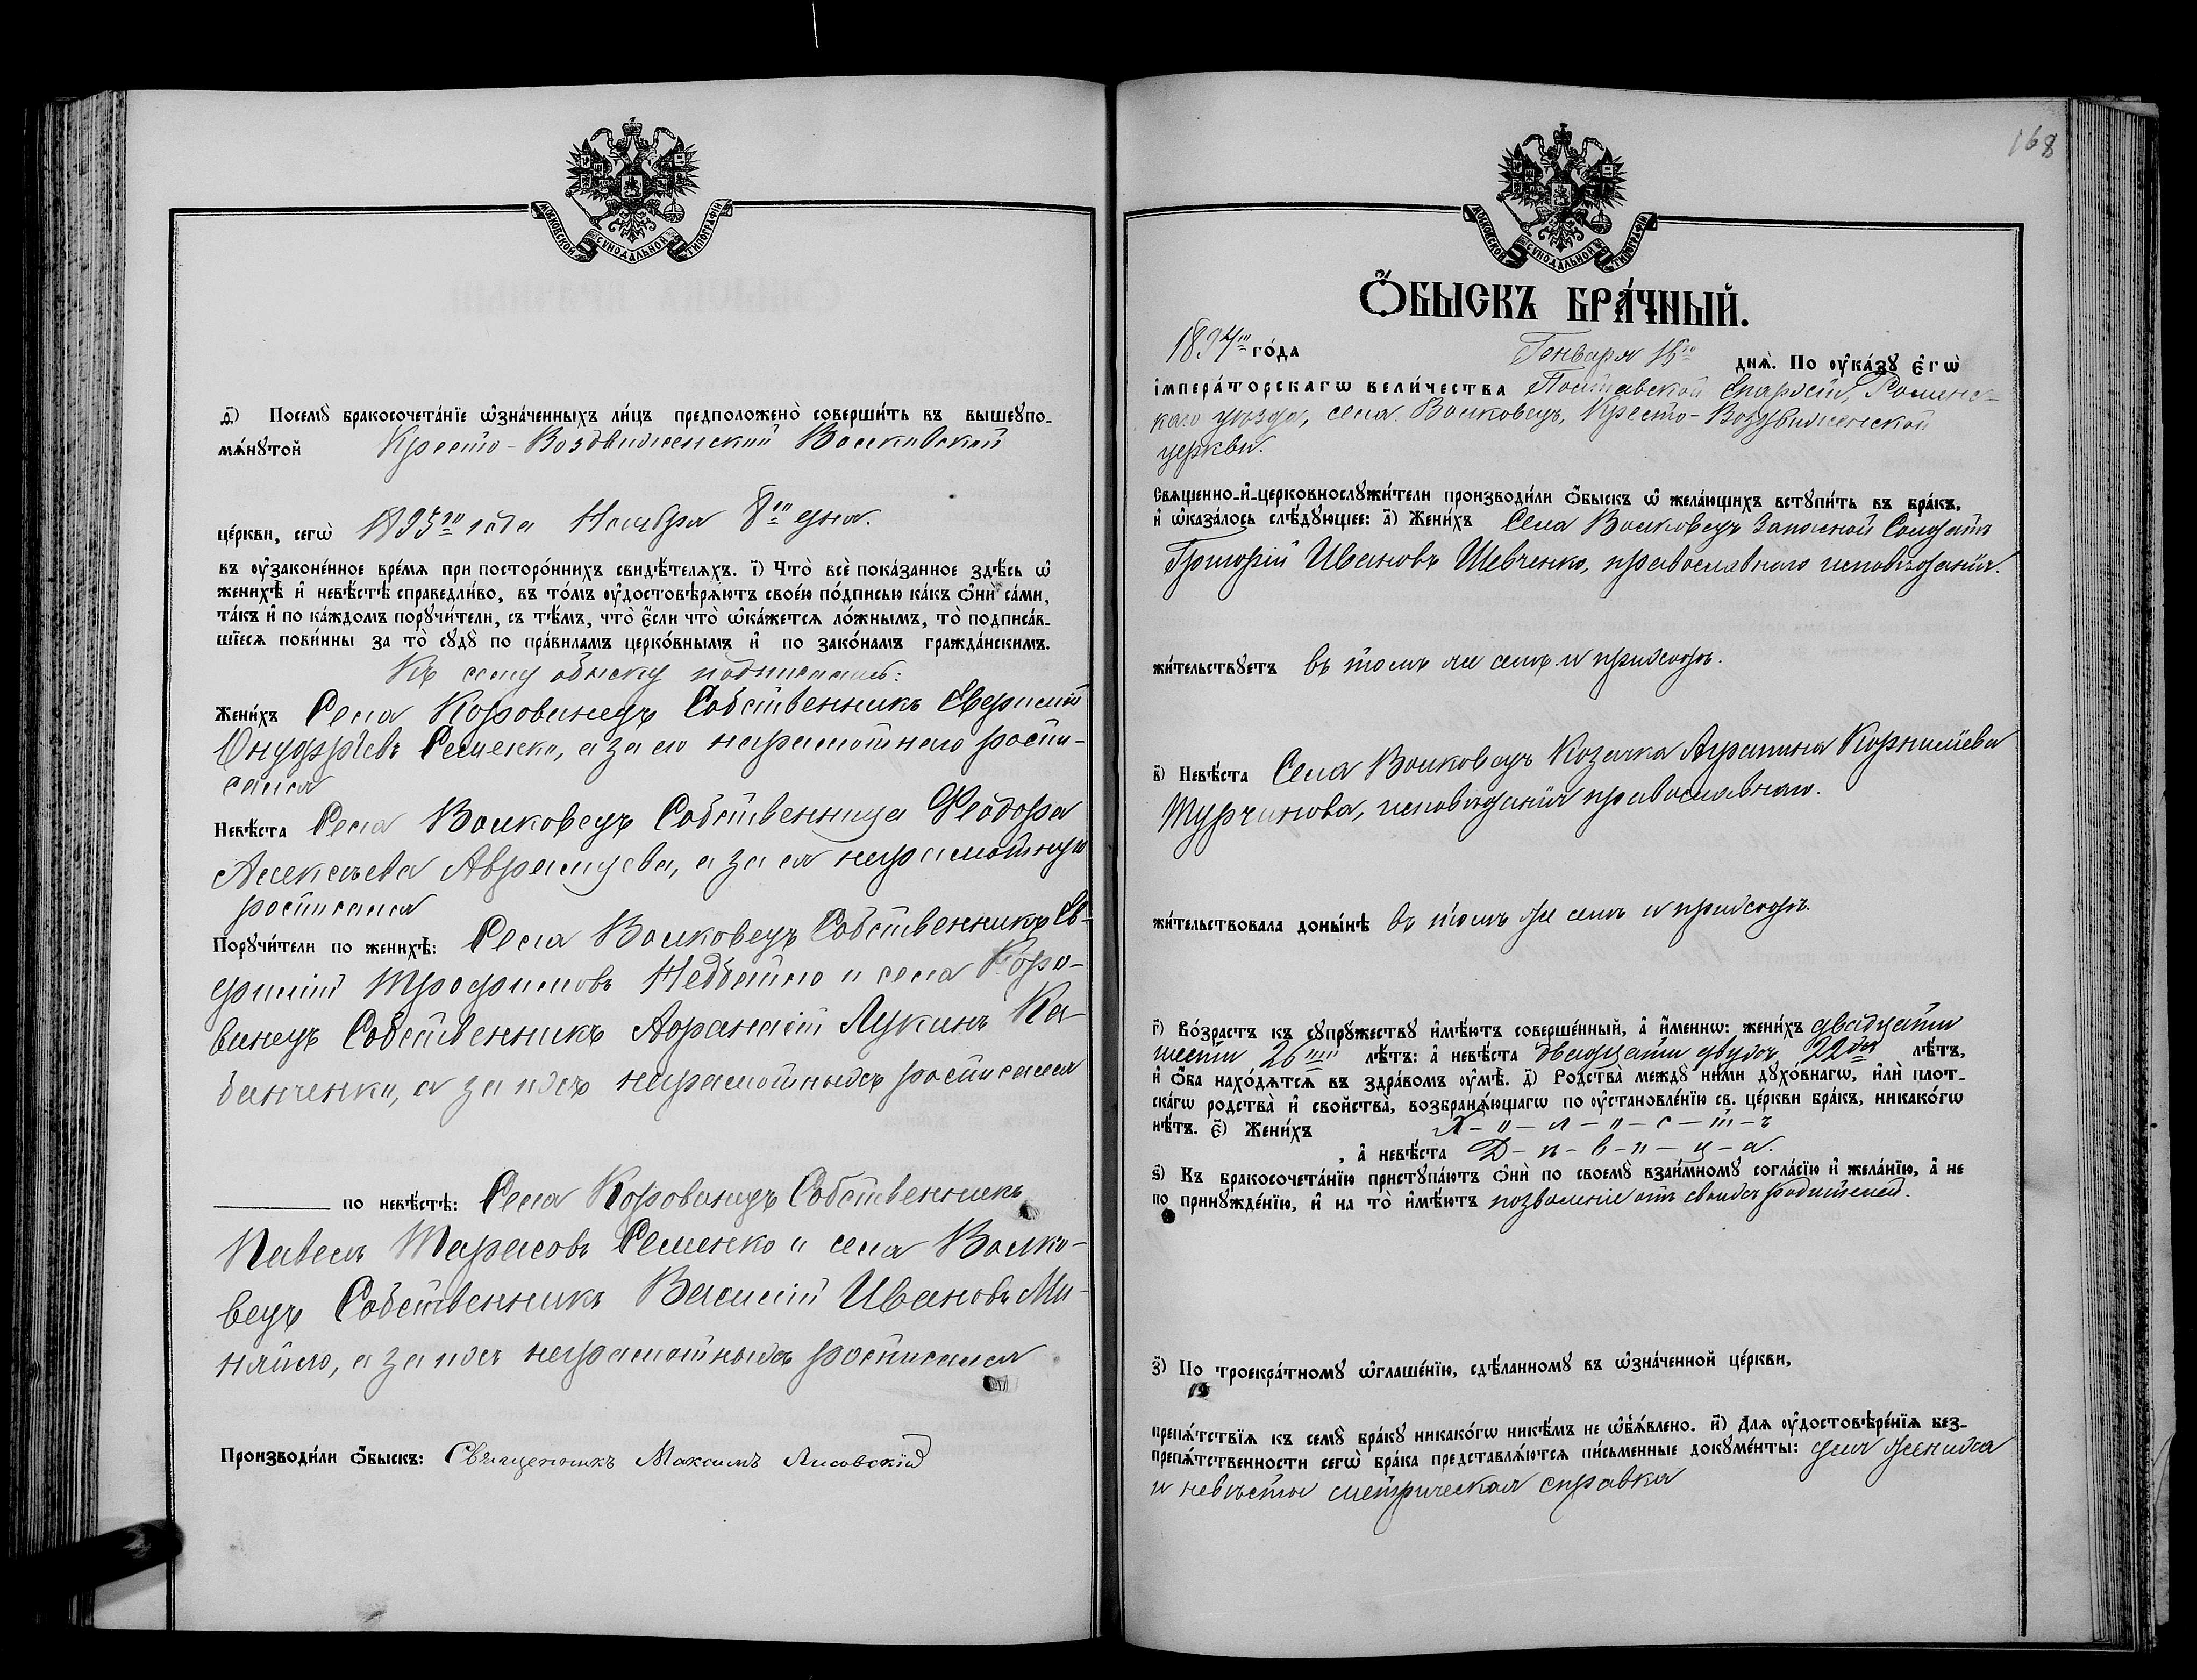 МОСКОВСКОЙ СѴНОДАЛЬНОЙ ТИПОГРАФІИ
д҃) Посемꙋ̀ бракосочета́нїе ѡ҆зна́ченныхъ ли́цъ предположено̀ соверши́ть въ вышеꙋпо-
мѧ́нꙋтой Кресто-Воздвиженской Волковской
це́ркви, сегѡ̀ 1893го года Ноября 8го дня.
въ ᲂу҆законе́нное вре́мѧ при посторо́ннихъ свидѣ́телѧхъ. і҃) Что̀ всѐ пока́занное здѣ́сь ѡ҆
женихѣ̀ и҆ невѣ́стѣ справедли́во, въ то́мъ ᲂу҆достовѣрѧ́ютъ свое́ю по́дписью ка́къ ѻ҆нѝ са́ми,
та́къ и҆ по ка́ждомъ порꙋчи́тели, съ тѣ́мъ, что̀ є҆́сли что̀ ѡ҆ка́жетсѧ ло́жнымъ, то̀ подписа́в-
шїесѧ пови́нны за то̀ сꙋдꙋ̀ по пра́виламъ церко́внымъ и҆ по зако́намъ гражда́нскимъ.
Къ сему обыску подписались:
Жени́хъ Села Коровинецъ Собственникъ
Онуфріевъ Семенко, а за его неграмотнаго роспи-
сался
Невѣ́ста Села Волковецъ Собственница Феодора
Алексѣева а за ея неграмотную
росписался
Порꙋчи́тели по женихѣ̀: Села Волковецъ Собственникъ Ев-
фимій Трофимовъ и села Коро-
винецъ Собственникъ Афанасій Лукинъ Ка-
банченко, а за ихъ неграмотныхъ росписался
по невѣ́стѣ: Села Коровинецъ Собственникъ
Павелъ Тарасовъ Семенко и села Волко-
вецъ Собственникъ Василій Ивановъ Ми-
няйло, а за ихъ неграмотныхъ росписался
Производи́ли ѻ҆́быскъ: Священникъ Максимъ Лисовскій
168
МОСКОВСКОЙ СѴНОДАЛЬНОЙ ТИПОГРАФІИ
Ѻ҆́БЫСКЪ БРА́ЧНЫЙ.
1894го го́да Генваря 15го днѧ̀. По ᲂу҆ка́зꙋ є҆гѡ̀
і҆мпера́торскагѡ вели́чества Полтавской Епархіи, Роменс-
каго уѣзда, села Волковецъ, Кресто-Воздвиженской
церкви.
Свѧщенно-и҆-церковнослꙋжи́тели производи́ли ѻ҆́быскъ ѡ҆ жела́ющихъ встꙋпи́ть въ бра́къ,
и҆ ѡ҆каза́лось слѣ́дꙋющее: а҃) Жени́хъ Села Волковецъ Запасной Солдатъ
Григорій Ивановъ Шевченко, православнаго исповѣданія.
жи́тельствꙋетъ въ томъ же селѣ и приходѣ.
в҃) Невѣ́ста Села Волковецъ Козачка Агрипина Корнилiева
Турчинова, исповѣданія православнаго.
жи́тельствовала доны́нѣ въ томъ же селѣ и приходѣ.
г҃) Во́зрастъ къ сꙋпрꙋ́жествꙋ и҆мѣ́ютъ соверше́нный, а҆ и҆́меннѡ: жени́хъ двадцати
шести 26ти лѣ́тъ: а҆ невѣ́ста двадцати двухъ 22хъ лѣ́тъ,
и҆ ѻ҆́ба нахо́дѧтсѧ въ здра́вомъ ᲂу҆мѣ̀. д҃) Родства̀ междꙋ̀ ни́ми дꙋхо́внагѡ, и҆лѝ плот-
ска́гѡ родства̀ и҆ свойства̀, возбранѧ́ющагѡ по ᲂу҆становле́нїю св. це́ркви бра́къ, никако́гѡ
нѣ́тъ. є҃) Жени́хъ Х-о-л-о-с-т-ъ
, а҆ невѣ́ста Д-ѣ-в-и-ц-а.
ѕ҃) Къ бракосочета́нїю пристꙋпа́ютъ ѻ҆нѝ по своемꙋ̀ взаи́мномꙋ согла́сїю и҆ жела́нїю, а҆ не
по принꙋжде́нїю, и҆ на то̀ и҆мѣ́ютъ позволеніе отъ своихъ родителей.
з҃) По троекра́тномꙋ ѡ҆глаше́нїю, сдѣ́ланномꙋ въ ѡ҆зна́ченной це́ркви,
препѧ́тствїѧ къ семꙋ̀ бра́кꙋ никако́гѡ никѣ́мъ не ѡ҆б̾ѧ́влено. и҃) Для ᲂу҆достовѣре́нїѧ без-
препѧ́тственности сегѡ̀ бра́ка представлѧ́ютсѧ пи́сьменные докꙋме́нты: для жениха
и невѣсты метрическая справка